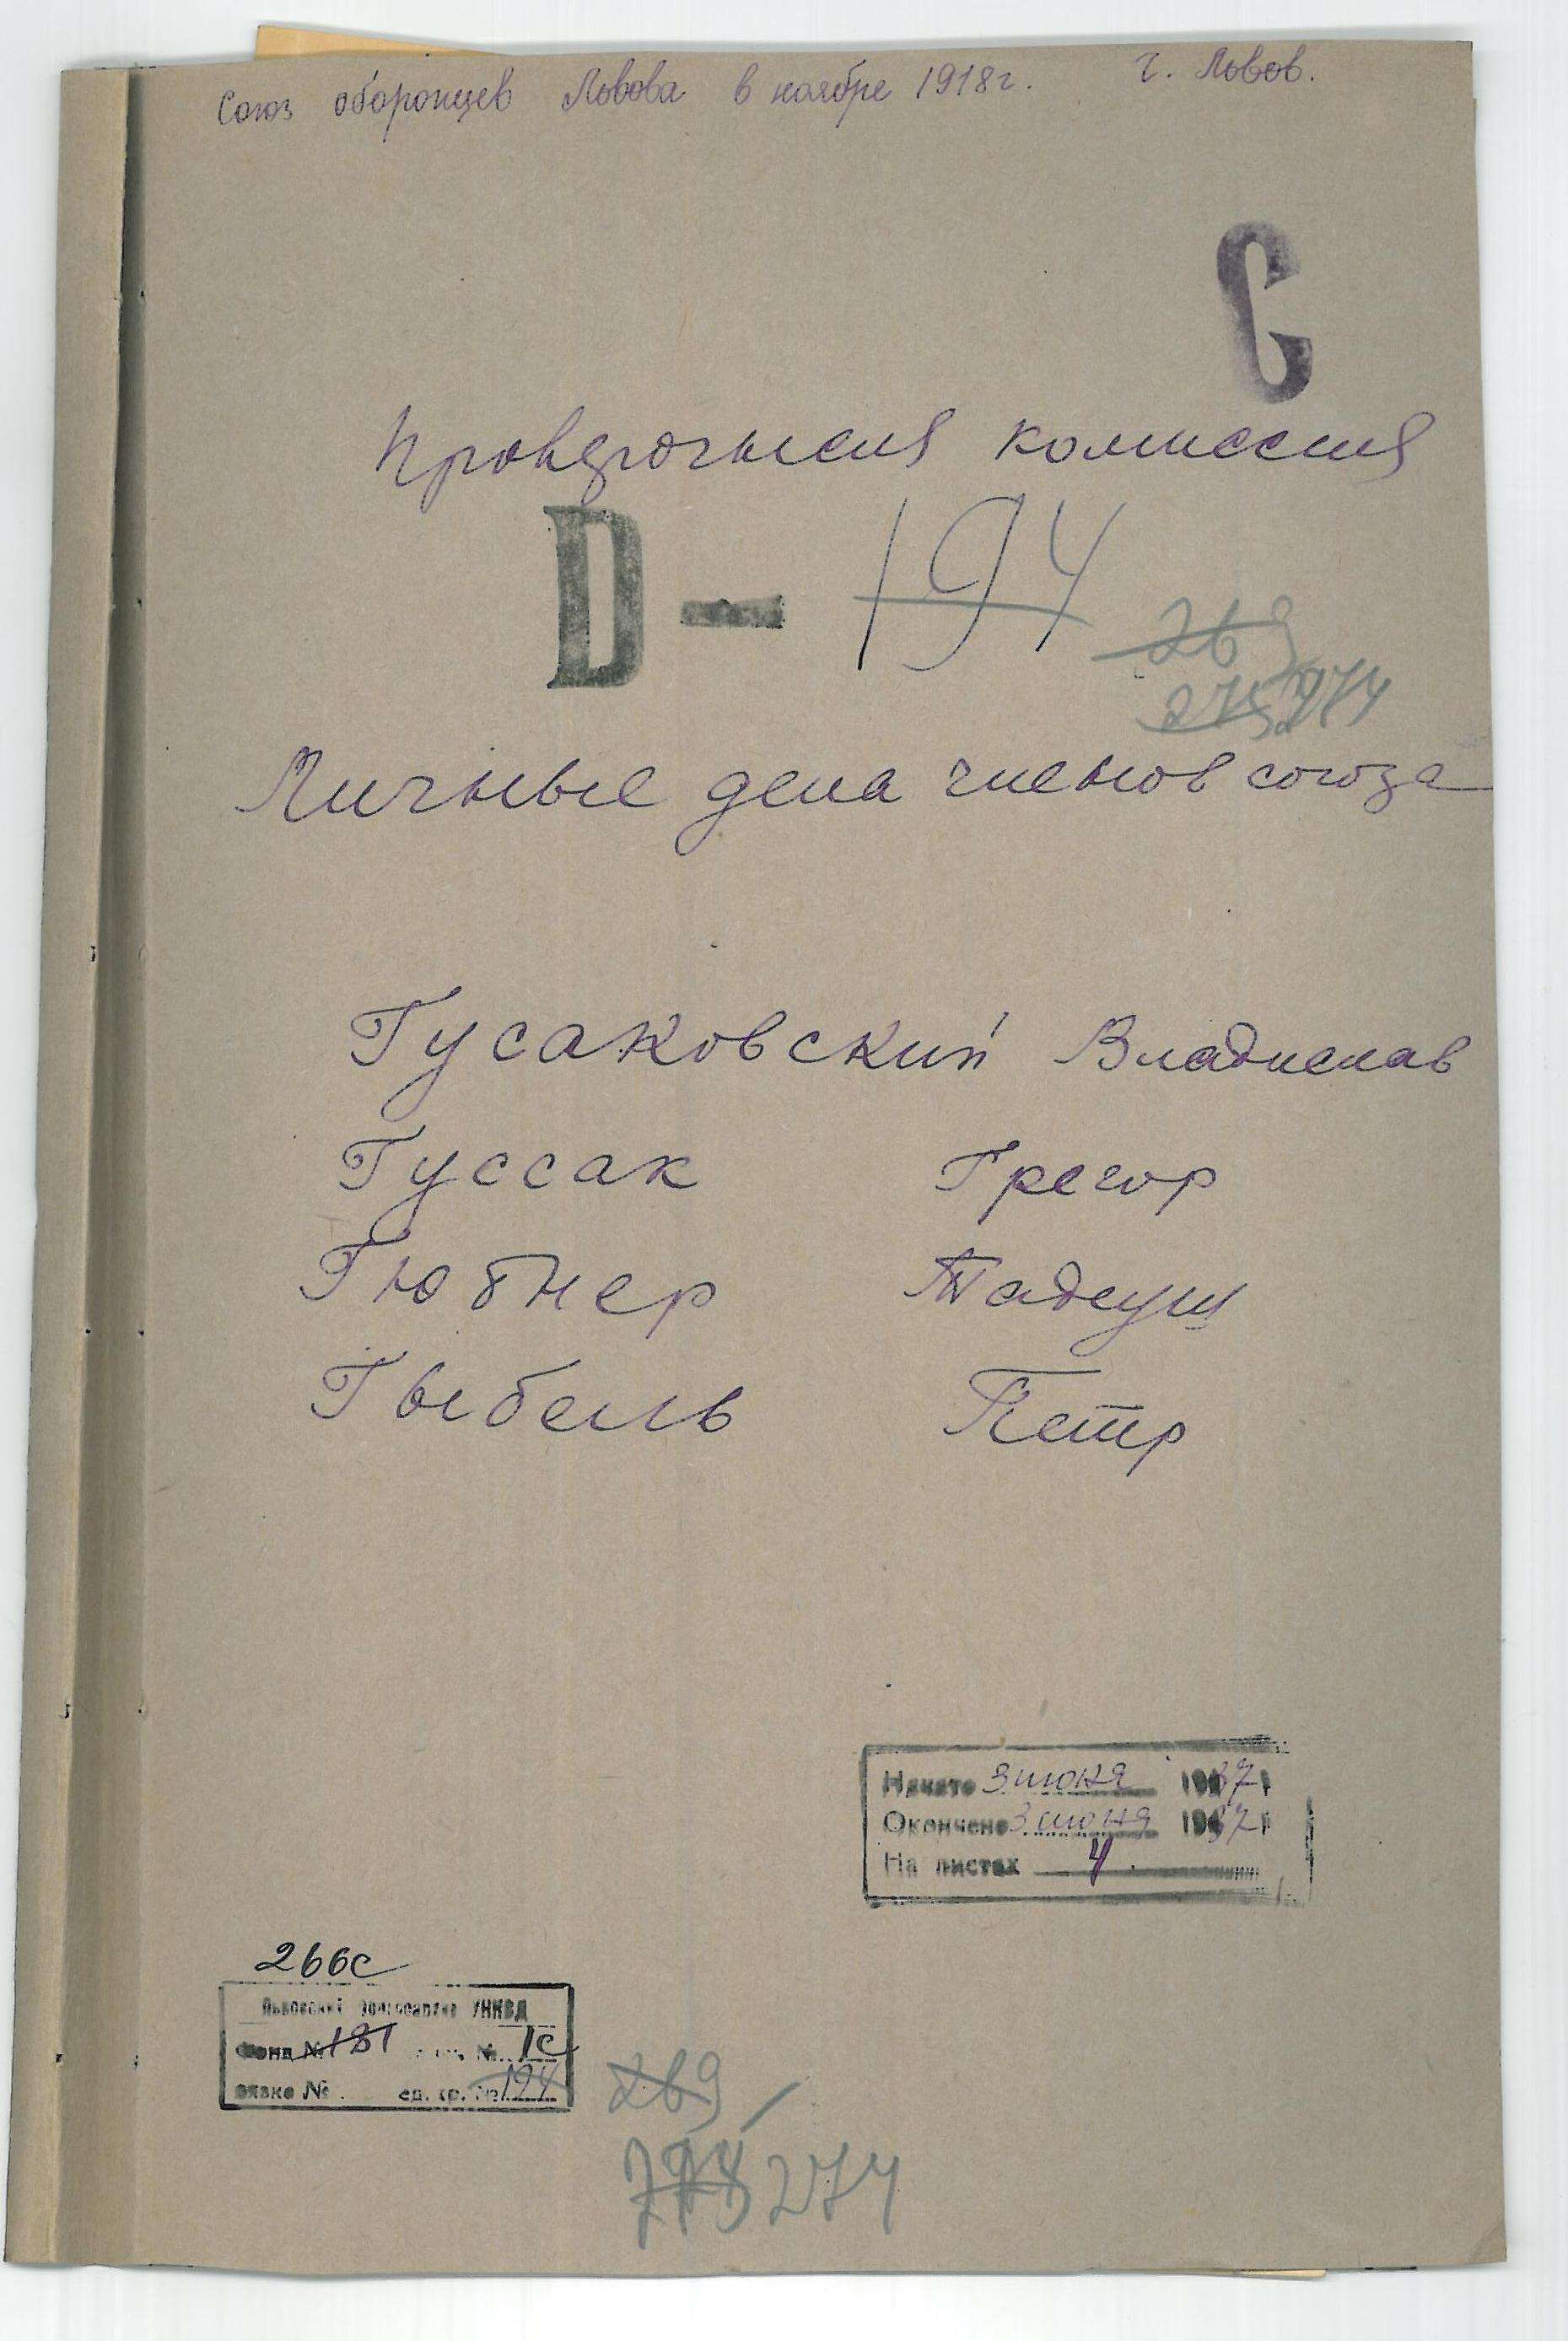 Союз оборонцев Львова в ноябре 1918г. г. Львов.
С
Проверочная комиссия
D - 194
269
275 274
Личные дела членов союза
Гусаковский Владислав
Гуссак Грегор
Гюбнер Тадеуш
Гыбель Петр
Начато 3 июня 1937
Окончено 3 июня 1937
На листах 4
266с
Львовский Облгосархив УНКВД
Фонд № 181 № 1с
вязке № ед. хр. № 194
269
274